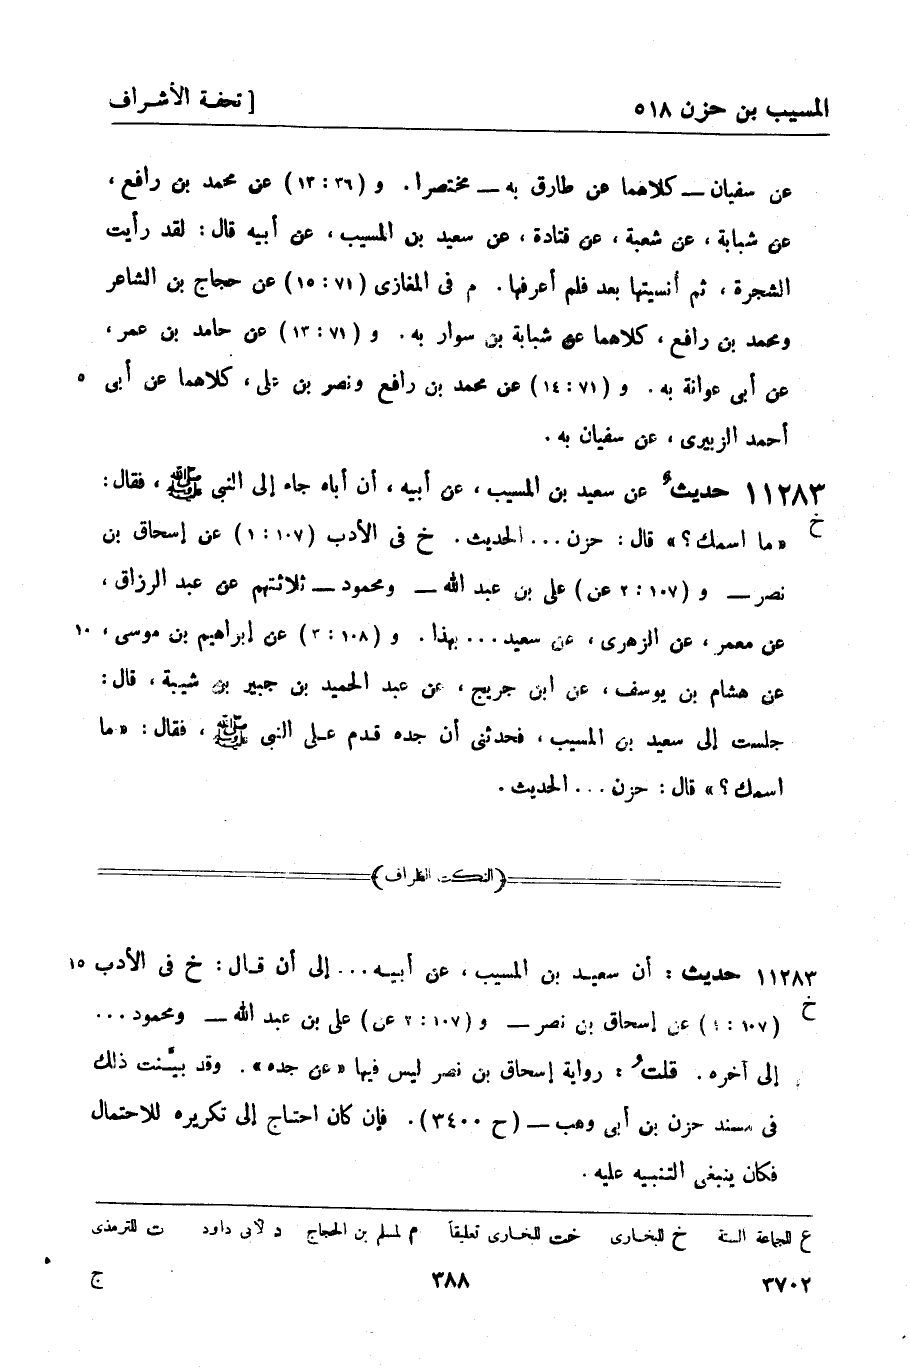 المسيب بن حزن ٥١٨ [ تحفة الأشراف
عن سفيان ــ كلاهما عن طارق به ــ مختصرا . و (٣٦ : ١٣) عن محمد بن رافع ،
عن شبابة ، عن شعبة ، عن قتادة ، عن سعيد بن المسيب ، عن أبيه قال : لقد رأيت
الشجرة ، ثم أنسيتها بعد فلم أعرفها . م فى المغازى (٧١ : ١٥) عن حجاج بن الشاعر
ومحمد بن رافع ، كلاهما عن شبابة بن سوار به . و (٧١ : ١٣) عن حامد بن عمر ،
عن أبى عوانة به . و (٧١ : ١٤) عن محمد بن رافع ونصر بن على ، كلاهما عن أبى ٥
أحمد الزبيرى ، عن سفيان به .
١١٢٨٣ حديثُ عن سعيد بن المسيب ، عن أبيه ، أن أباه جاء إلى النبى ﷺ ، فقال :
خ « ما اسمك ؟ » قال : حزن . . . الحديث . خ فى الأدب (١٠٧ : ١) عن إسحاق بن
نصر ــ و (١٠٧ : ٢ عن) على بن عبد الله ــ ومحمود ــ ثلاثتهم عن عبد الرزاق ،
عن معمر ، عن الزهرى ، عن سعيد . . . بهذا . و (١٠٨ : ٣) عن إبراهيم بن موسى ، ١٠
عن هشام بن يوسف ، عن ابن جريج ، عن عبد الحميد بن جبير بن شيبة ، قال :
جلست إلى سعيد بن المسيب ، فحدثنى أن جده قدم على النبى ﷺ ، فقال : « ما
اسمك ؟ » قال : حزن . . . الحديث .
(النكت الظراف)
١١٢٨٣ حديث : أن سعيد بن المسيب ، عن أبيه . . . إلى أن قال : خ فى الأدب ١٥
خ (١٠٧ : ١) عن إسحاق بن نصر ــ و (١٠٧ : ٢ عن) على بن عبد الله ــ ومحمود . . .
إلى آخره . قلتُ : رواية إسحاق بن نصر ليس فيها « عن جده » . وقد بيَّنت ذلك
فى مسند حزن بن أبى وهب ــ (ح ٣٤٠٠) . فإن كان احتاج إلى تكريره للاحتمال
فكان ينبغى التنبيه عليه .
ع للجماعة الستة خ للبخارى خت للبخارى تعليقاً م لمسلم بن الحجاج د لأبى داود ت للترمذى
٣٧٠٢ ٣٨٨ ج